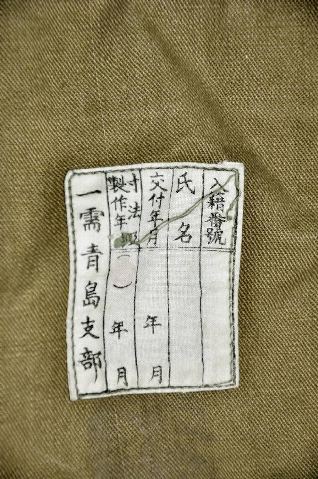 入籍番號
氏名
交付年月 年 月
寸法
製作年 年 月
一需青島支部